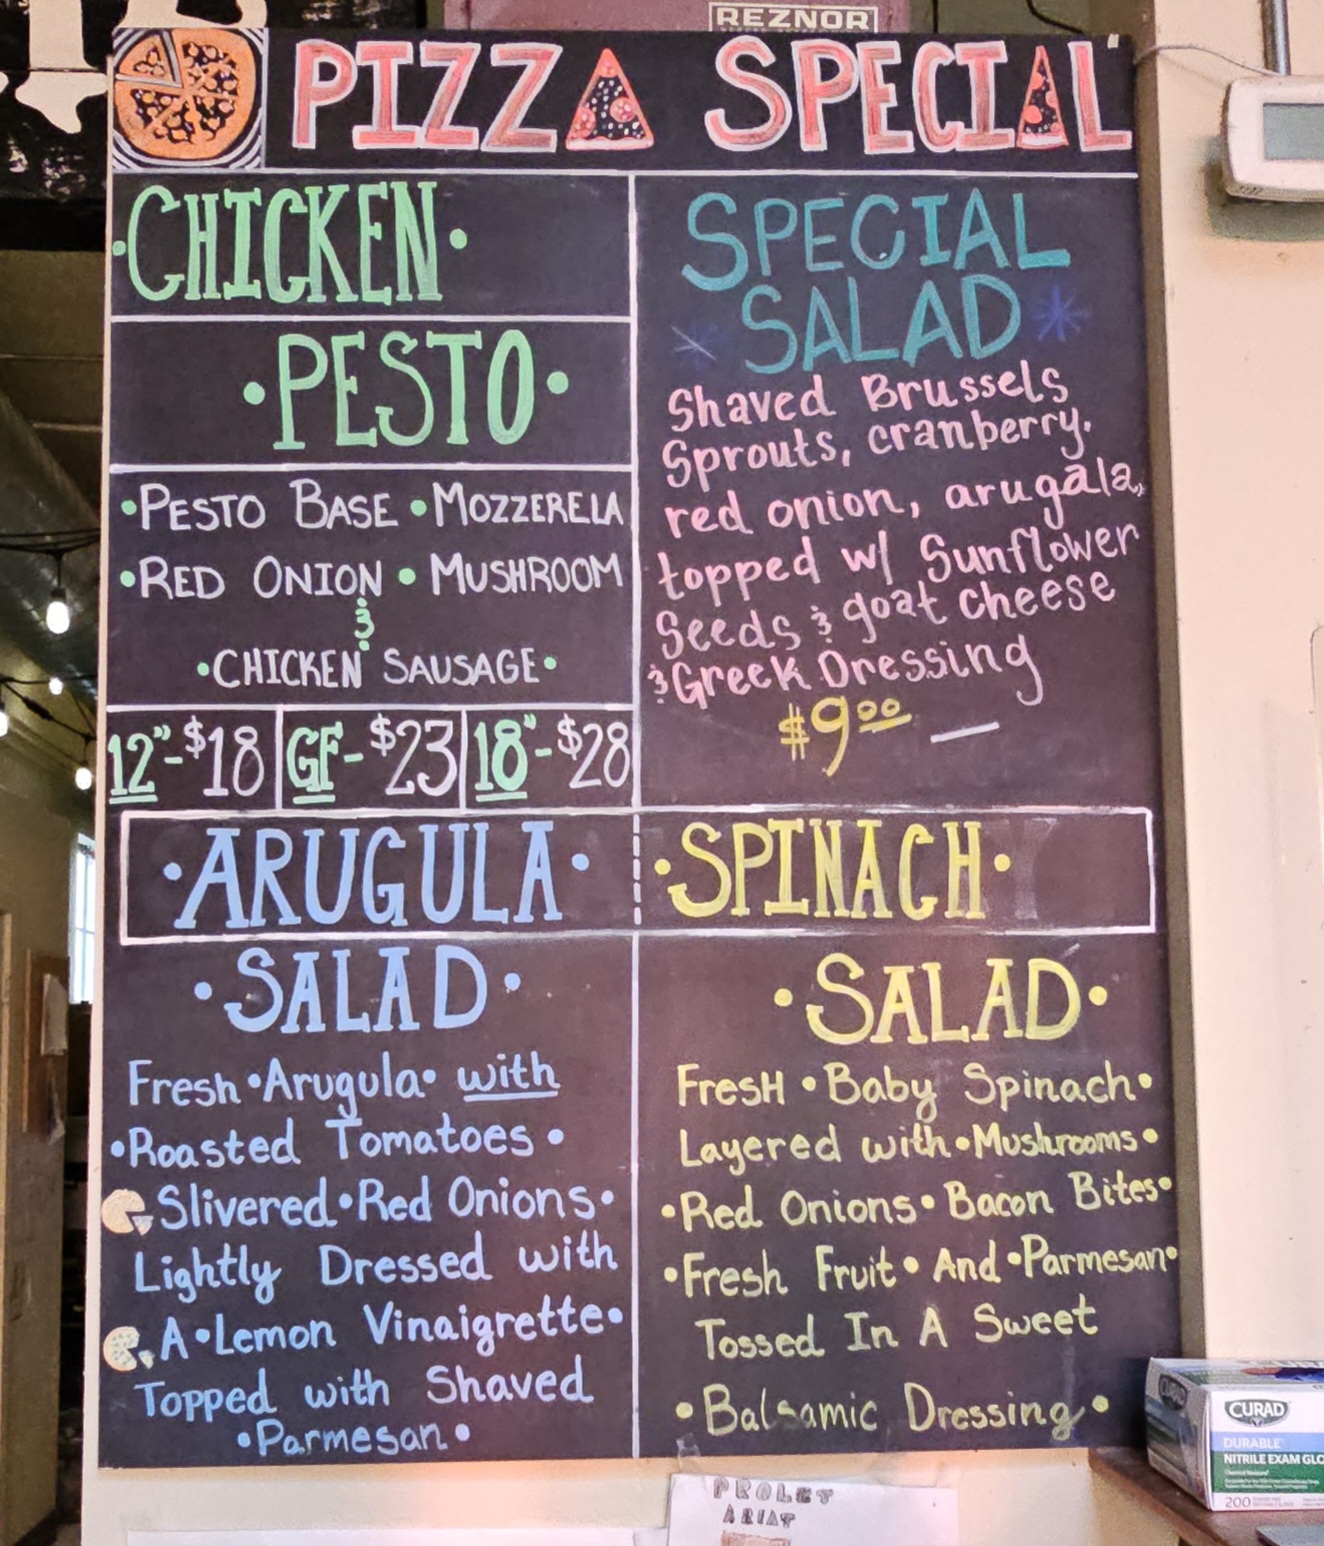 REZNOR
PIZZA SPECIAL
·CHICKEN·
·PESTO·
·PESTO BASE ·MOZZERELA
·RED ONION · MUSHROOM
&
·CHICKEN SAUSAGE·
12"-$18 GF-$23 18"-$28
SPECIAL
SALAD
Shaved Brussels
Sprouts, cranberry.
red onion, arugala,
topped w/ Sunflower
Seeds & goat cheese
& Greek Dressing
$9.00 —
·ARUGULA·
·SALAD·
Fresh ·Arugula· with
·Roasted Tomatoes ·
Slivered·Red Onions·
Lightly Dressed with
A·Lemon Vinaigrette·
Topped with Shaved
·Parmesan·
·SPINACH·
·SALAD·
FresH ·Baby Spinach·
Layered with·Mushrooms·
·Red Onions· Bacon Bites·
·Fresh Fruit· And ·Parmesan·
Tossed In A Sweet
·Balsamic Dressing·
CURAD
DURABLE
NITRILE EXAM GLO
200
PROLET
ARIAT